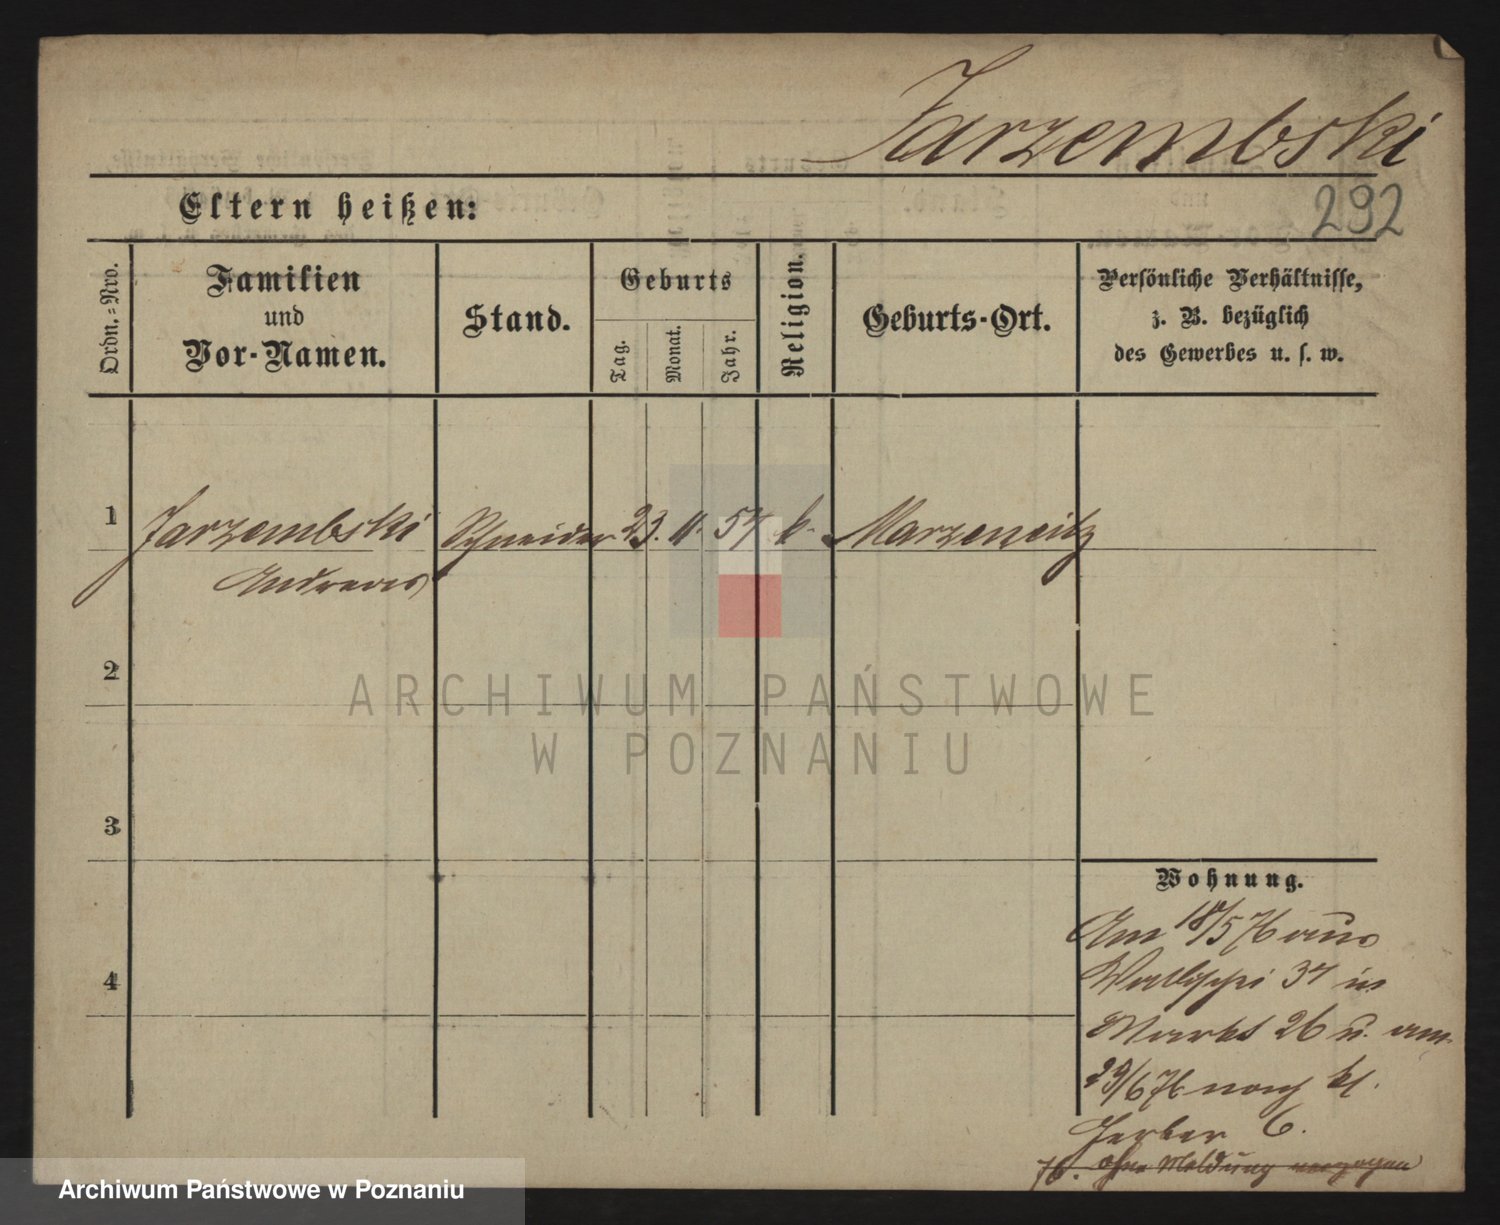 Jarzembski
292
Eltern heißen:
Ordn.=Nro.
Familien
und
Vor-Namen.
Stand.
Geburts
Tag.
Monat.
Jahr.
Religion.
Geburts-Ort.
Persönliche Verhältnisse,
z. B. bezüglich
des Gewerbes u. s. w.
1
Jarzembski
Andreas
Schneider
23.
11.
54
k.
Marzeneitz
2
3
4
Wohnung.
Am 18/5 76 aus
Wallischei 34 in
Markt 26 u. am
29/6 76 nach kl.
Gerber 6.
76. ohne Meldung
ARCHIWUM PAŃSTWOWE
W POZNANIU
Archiwum Państwowe w Poznaniu